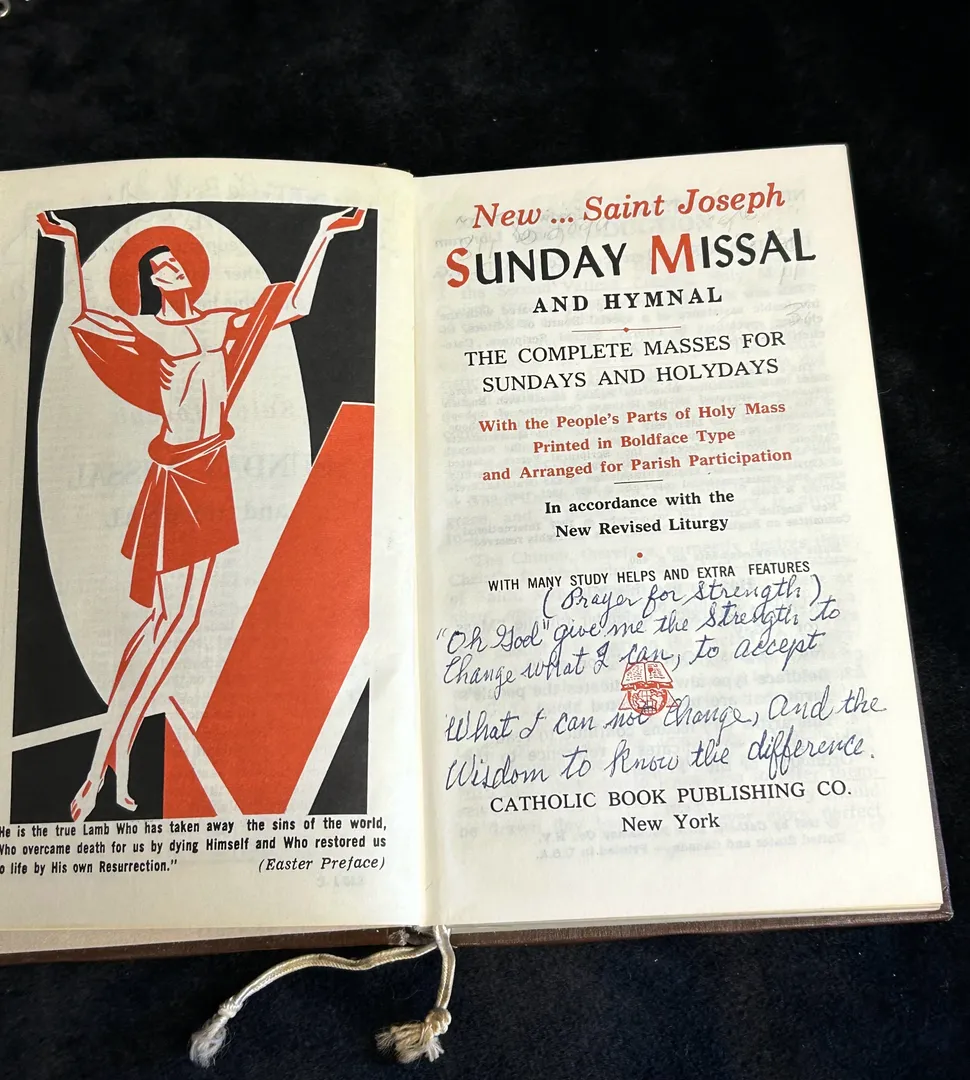 He is the true Lamb Who has taken away the sins of the world,
Who overcame death for us by dying Himself and Who restored us
o life by His own Resurrection."
(Easter Preface)
New ... Saint Joseph
SUNDAY MISSAL
AND HYMNAL
THE COMPLETE MASSES FOR
SUNDAYS AND HOLYDAYS
With the People's Parts of Holy Mass
Printed in Boldface Type
and Arranged for Parish Participation
In accordance with the
New Revised Liturgy
WITH MANY STUDY HELPS AND EXTRA FEATURES
(Prayer for Strength)
"Oh God" give me the Strength to
Change what I can, to accept
What I can not Change, and the
Wisdom to know the difference.
CATHOLIC BOOK PUBLISHING CO.
New York